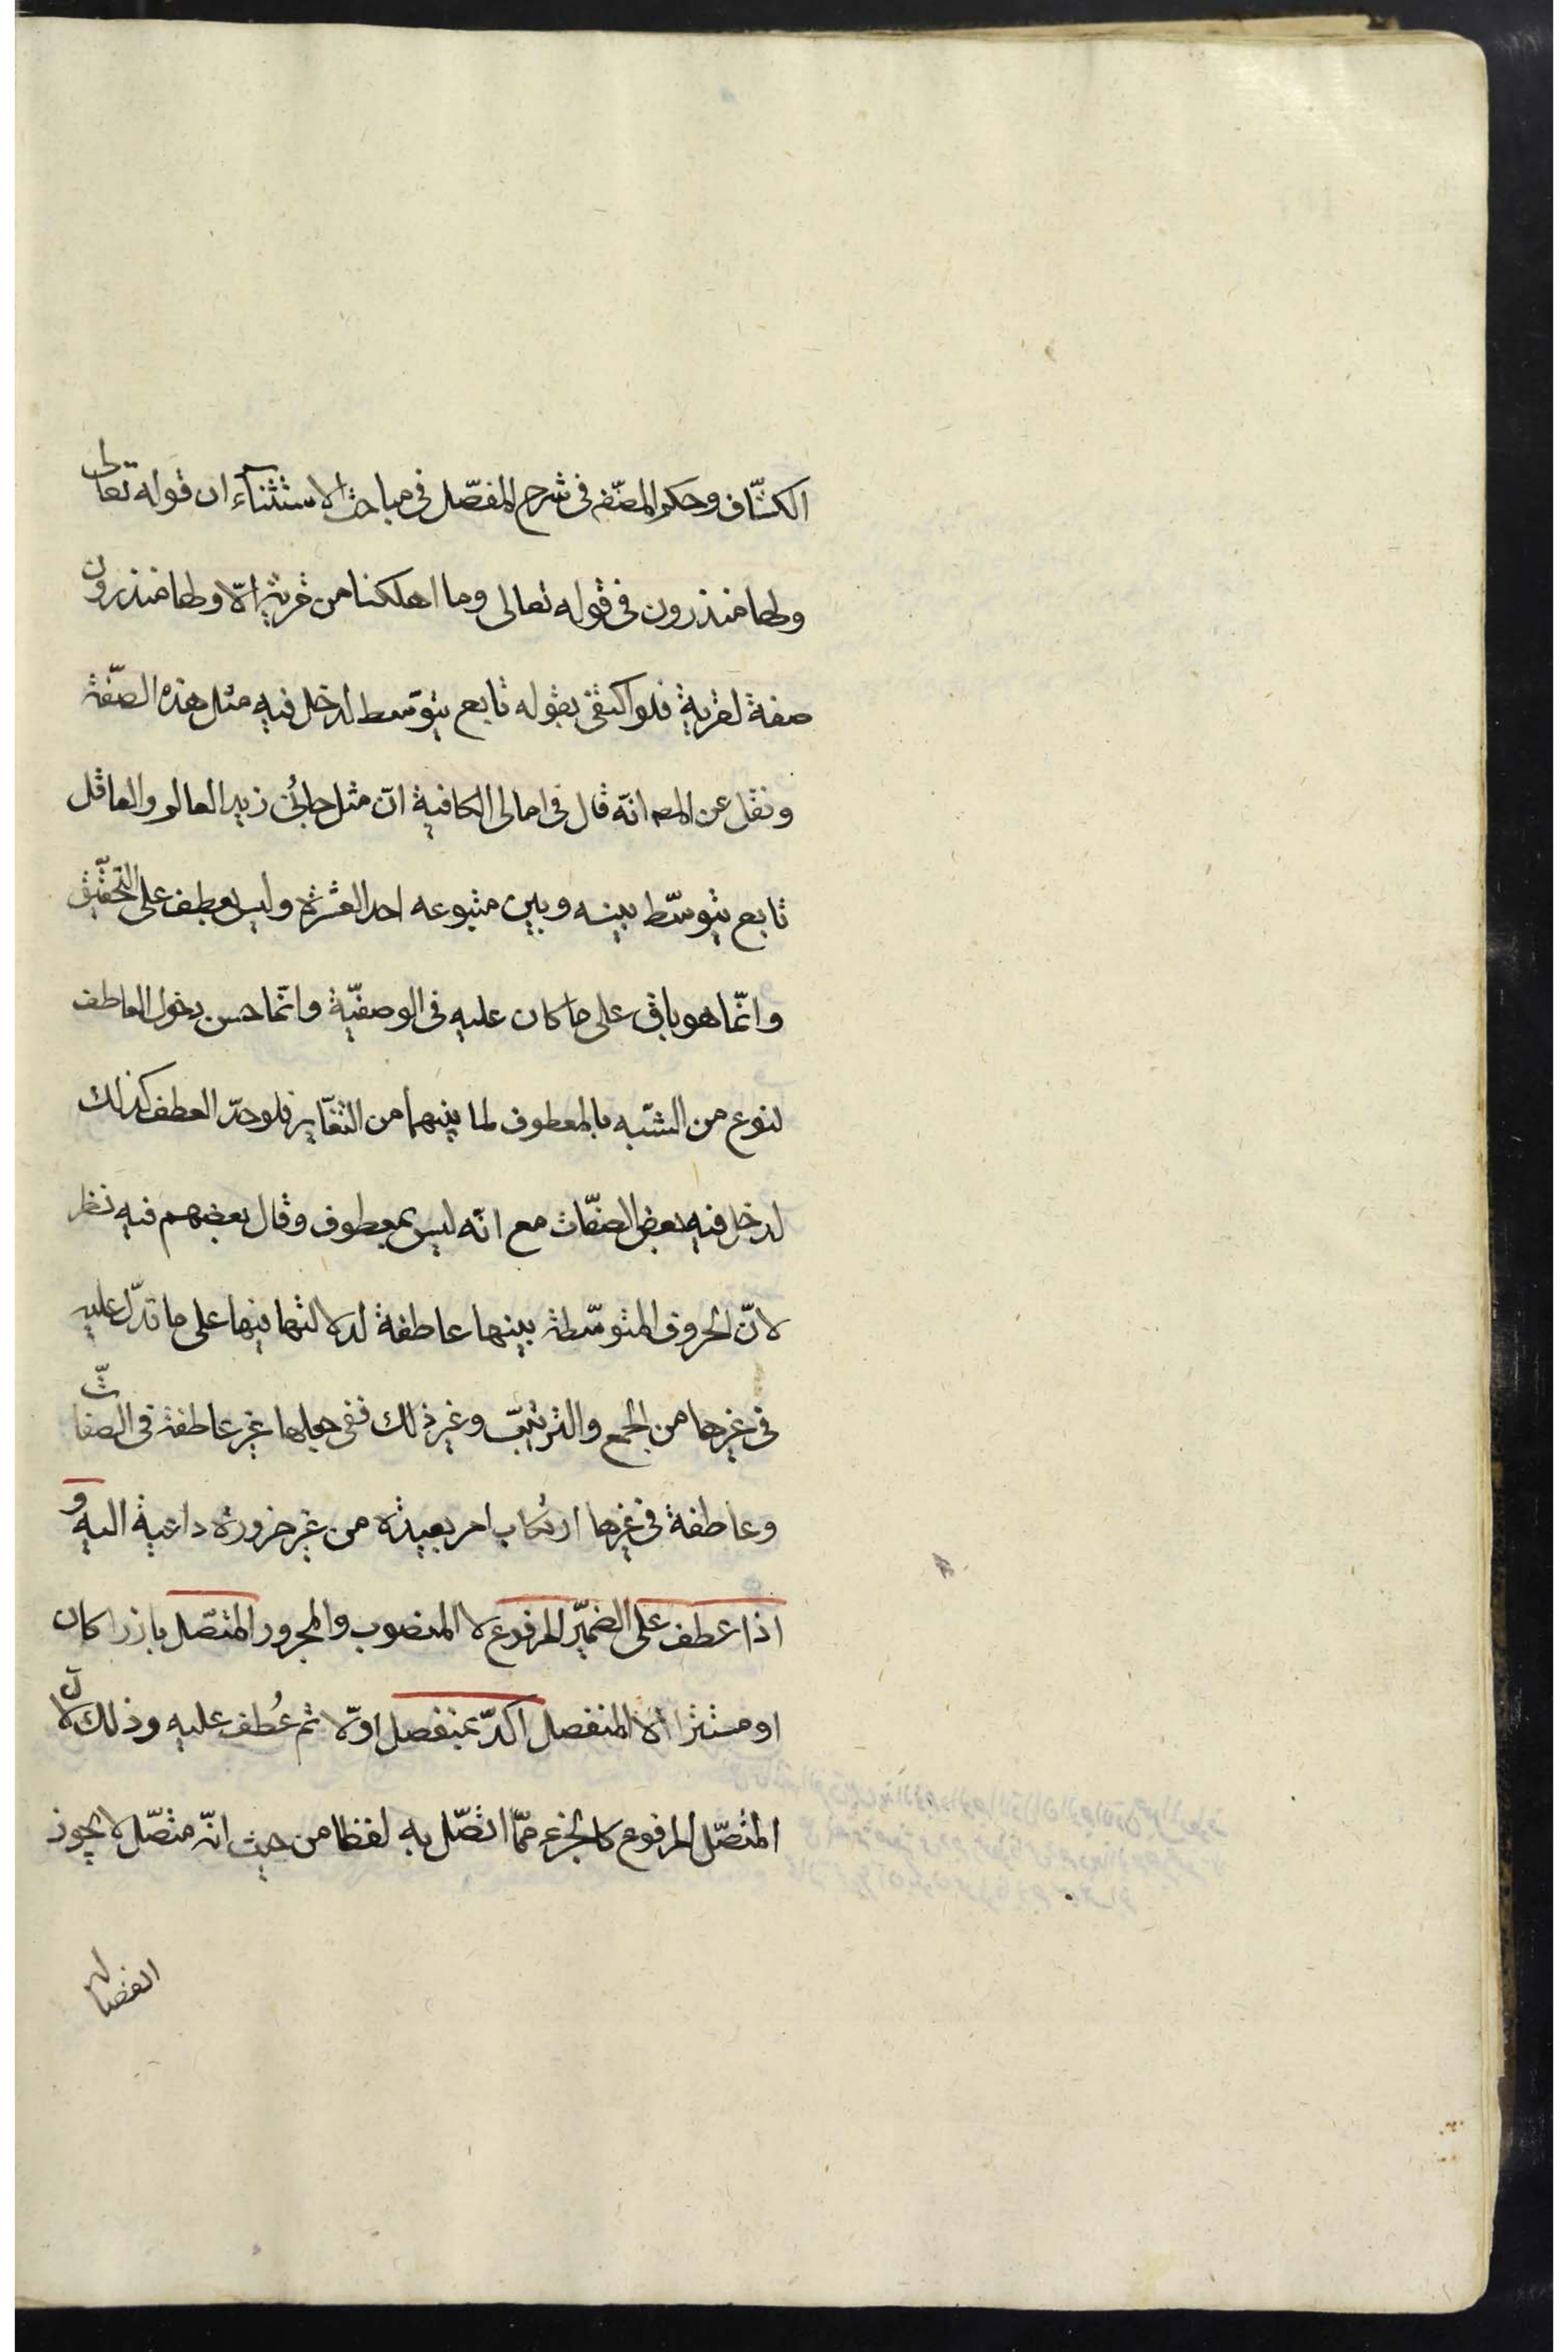 الكشّاف وحكم المصنّف فى شرح المفصّل فى مباحث الاستثنآء ان قوله تعالى
ولها منذرون فى قوله تعالى وما اهلكنا من قرية الّا ولها منذرون
صفة لقرية فلو اكتفى بقوله تابع يتوسّط لدخل فيه مثل هذه الصّفة
ونقل عن المصـ انّه قال فى امالى الكافية انّ مثل جائنى زيد العالم والعاقل
تابع يتوسّط بينه وبين متبوعه احد العشرة وليس بعطف على التحقيق
وانّما هو باق على ما كان عليه فى الوصفيّة وانّما حسن دخول العاطف
لنوع من الشّبه بالمعطوف لما بينهما من التغاير فلو حدّ العطف كذلك
لدخل فيه بعض الصفّات مع انّه ليس بمعطوف وقال بعضهم فيه نظر
لانّ الحروف المتوسّطة بينها عاطفة لدلالتها فيها على ما تدلّ عليه
فى غيرها من الجمع والترتيب وغير ذلك ففى جعلها غير عاطفة فى الصفات
وعاطفة فى غيرها ارتكاب امر بعيد من غير ضرورة داعية اليه و
اذا عطف على الضمير المرفوع لا المنصوب والمجرور المتصّل بارزا كان
او مستترا لا المنفصل اكدّ بمنفصل اوّلا ثم عُطف عليه وذلك لانّ
المتصّل المرفوع كالجزء ممّا اتصّل به لفظا من حيث انّه متصّل لا يجوز
انفصاله